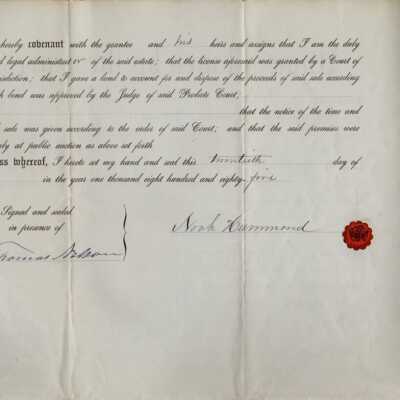 hereby covenant with the grantee and his heirs and assigns that I am the duly
d legal administrator of the said estate; that the license aforesaid was granted by a Court of
isdiction; that I gave a bond to account for and dispose of the proceeds of said sale according
h bond was approved by the Judge of said Probate Court;
that the notice of the time and
sale was given according to the order of said Court; and that the said premises were
ly at public auction as above set forth
ss whereof, I hereto set my hand and seal this twentieth day of
in the year one thousand eight hundred and eighty-five
Signed and sealed
in presence of
Noah Hammond
Thomas